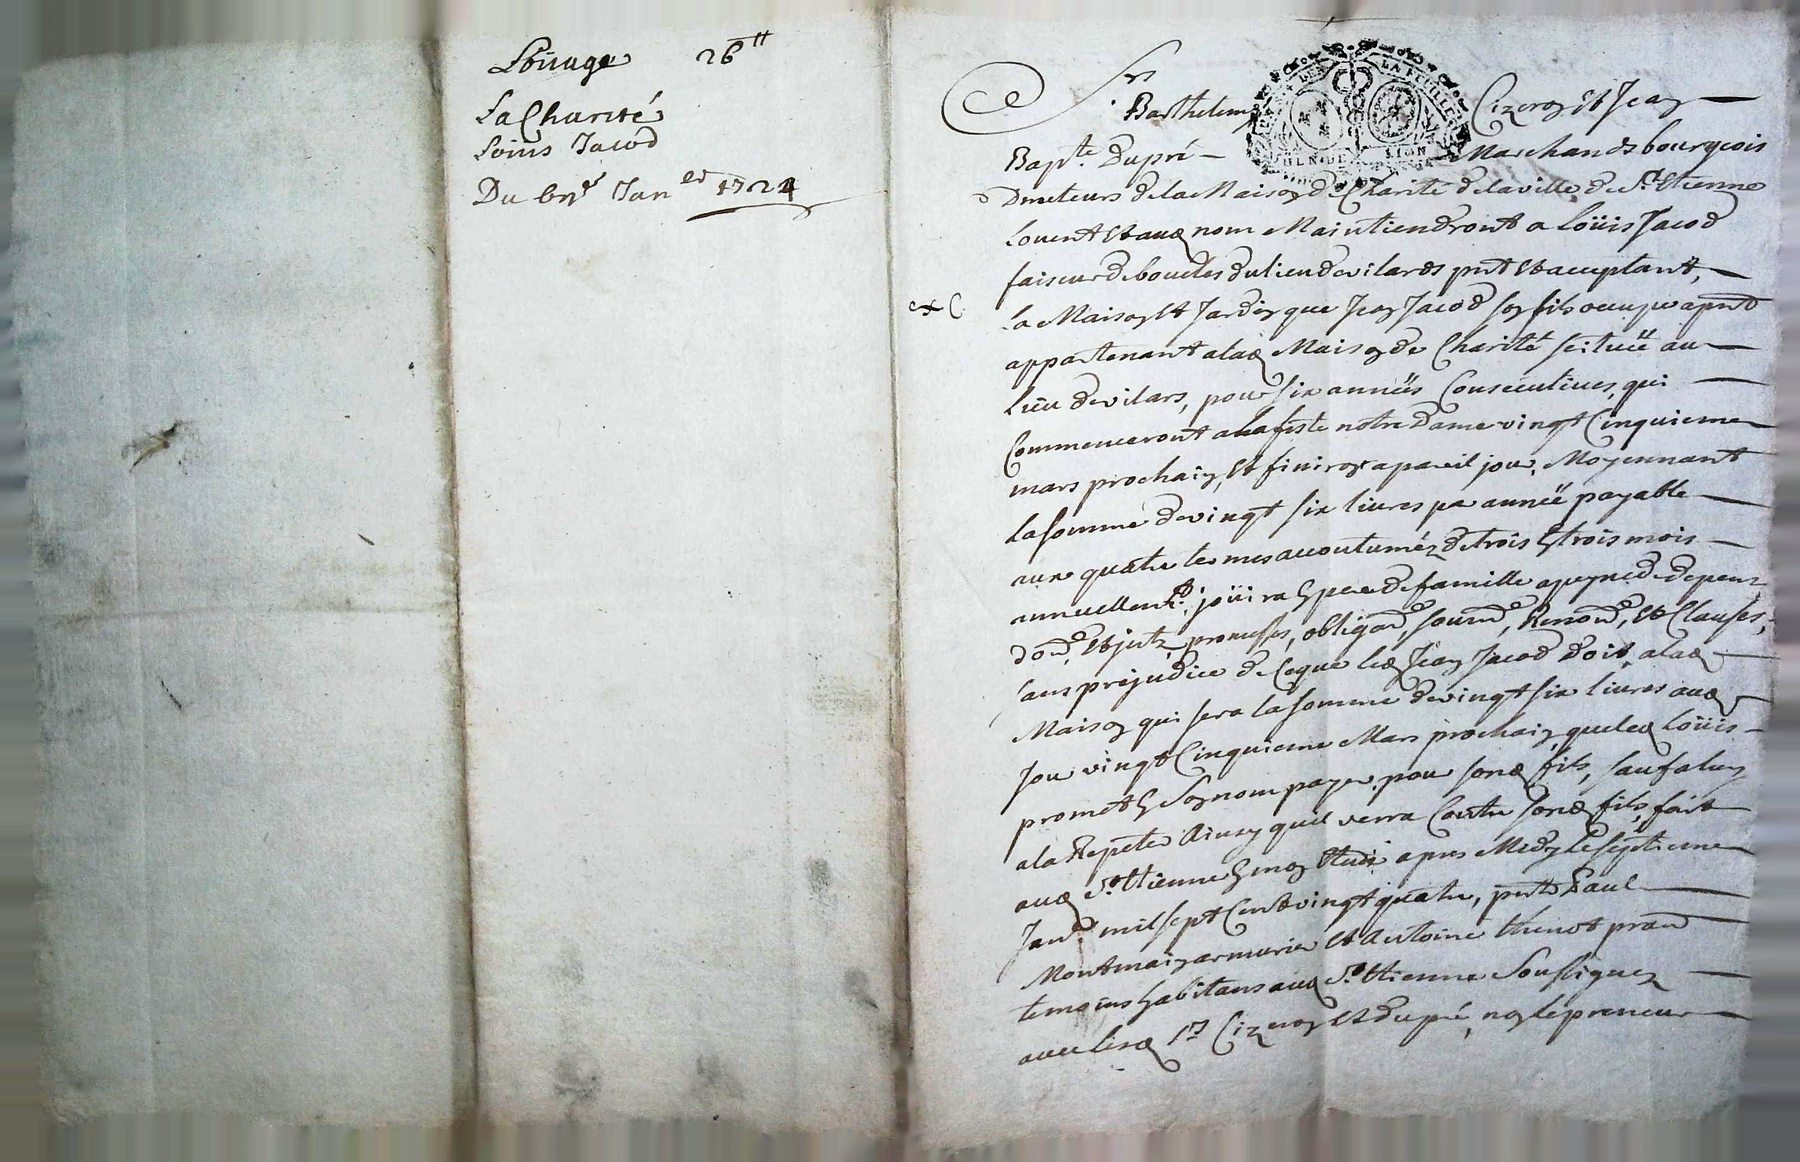 Loüage 26tt
La Charité
Loüis Jacod
Du 7e Janer 1724
Srs
Barthelemy Cizeron et Jean
Bapte. Dupré Marchands bourgeois
Directeurs de la Maison de Charité de la ville de St. Etienne
Louent et aud nom Maintiendront a Loüis Jacod
faiseur de boucles du lieu de vilards pnt et acceptant,
La Maison et Jardin que Jean Jacod son fils occupe apnt
appartenant a lad Maison de Charité scituéé au
Lieu de vilars, pour six annéés Consecutives, qui
Commenceront a la feste notre Dame vingt Cinquieme
mars prochain, et finiront a pareil jour, Moyennant
La somme de vingt six livres par annéé payable
aux quatre termes accoutumés de trois En trois mois
annuellemt. joüira En pere de famille a peyne de depens
par promesses, obligaõns, soumõns, Renonõns, et Clauses,
sans prejudice de Ce que led Jean Jacod doit a lad
Maison qui sera la somme de vingt six livres aud
Jour vingt Cinquieme Mars prochain, que led Loüis
promet En Son nom payer pour sond fils, sauf a luy
a la Repeter Ainsy quil verra Contre sond fils, fait
aud St. Etienne En mon Etude apres Midy Le septieme
Janer. mil sept Cent vingt quatre, pnts Paul
Montmain armurier et Antoine thenot pratn
temoins habitans aud St. Etienne Soussignez
avec lesd Srs Cizeron et dupré, non le preneur